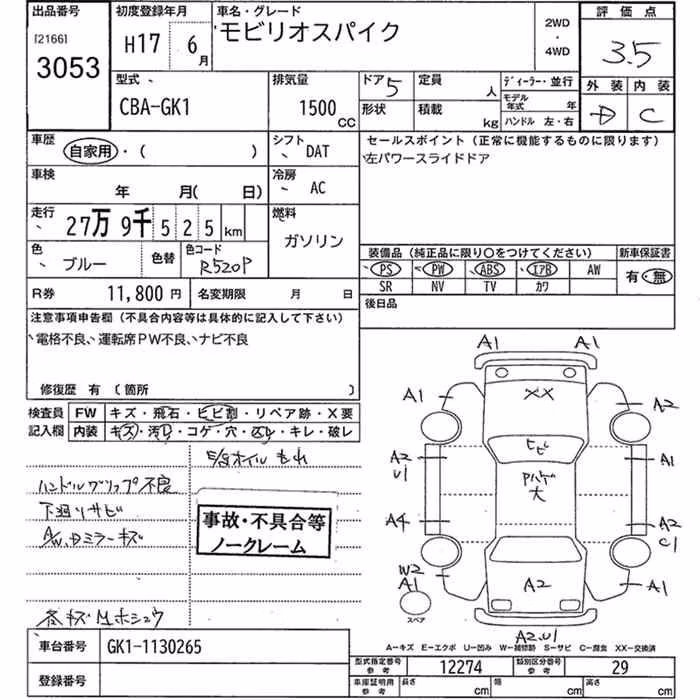 出品番号
[2166]
3053
初度登録年月
H17 6月
車名・グレード
モビリオスパイク
2WD
・
4WD
評価点
3.5
外装 内装
D C
型式
CBA-GK1
排気量
1500 CC
ドア 5
形状
定員 人
積載 kg
ディーラー・並行
モデル年式 年
ハンドル 左・右
車歴
自家用・( )
シフト
DAT
車検
年 月(日)
冷房
AC
走行
27万9千525km
燃料
ガソリン
色
ブルー
色替
色コード
R520P
R券 11,800円
名変期限 月 日
セールスポイント(正常に機能するものに限ります)
左パワースライドドア
装備品(純正品に限り○をつけてください)
PS PW ABS エアB AW
SR NV TV カワ
新車保証書
有・無
後日品
注意事項申告欄(不具合内容等は具体的に記入して下さい)
電格不良、運転席PW不良、ナビ不良
修復歴 有(箇所 )
検査員記入欄
FW キズ・飛石・ヒビ割・リペア跡・X要
内装 キズ・汚れ・コゲ・穴・スレ・キレ・破レ
オイルもれ
ハンドルグリップ不良
下廻りサビ
A/W、Dミラーキズ
各キズ ホシュウ
事故・不具合等
ノークレーム
A1 A1
A1 XX A2
ヒビ
A2 U1 A1
Pハゲ大
A4 A2 C1
W2 A1 A2 A1
スペア
A2.U1
A=キズ E=エクボ U=凹み W=補修跡 S=サビ C=腐食 XX=交換済
車台番号 GK1-1130265
登録番号
型式指定番号 参考 12274
類別区分番号 参考 29
車庫証明用 参考 長さ cm 幅 cm 高さ cm